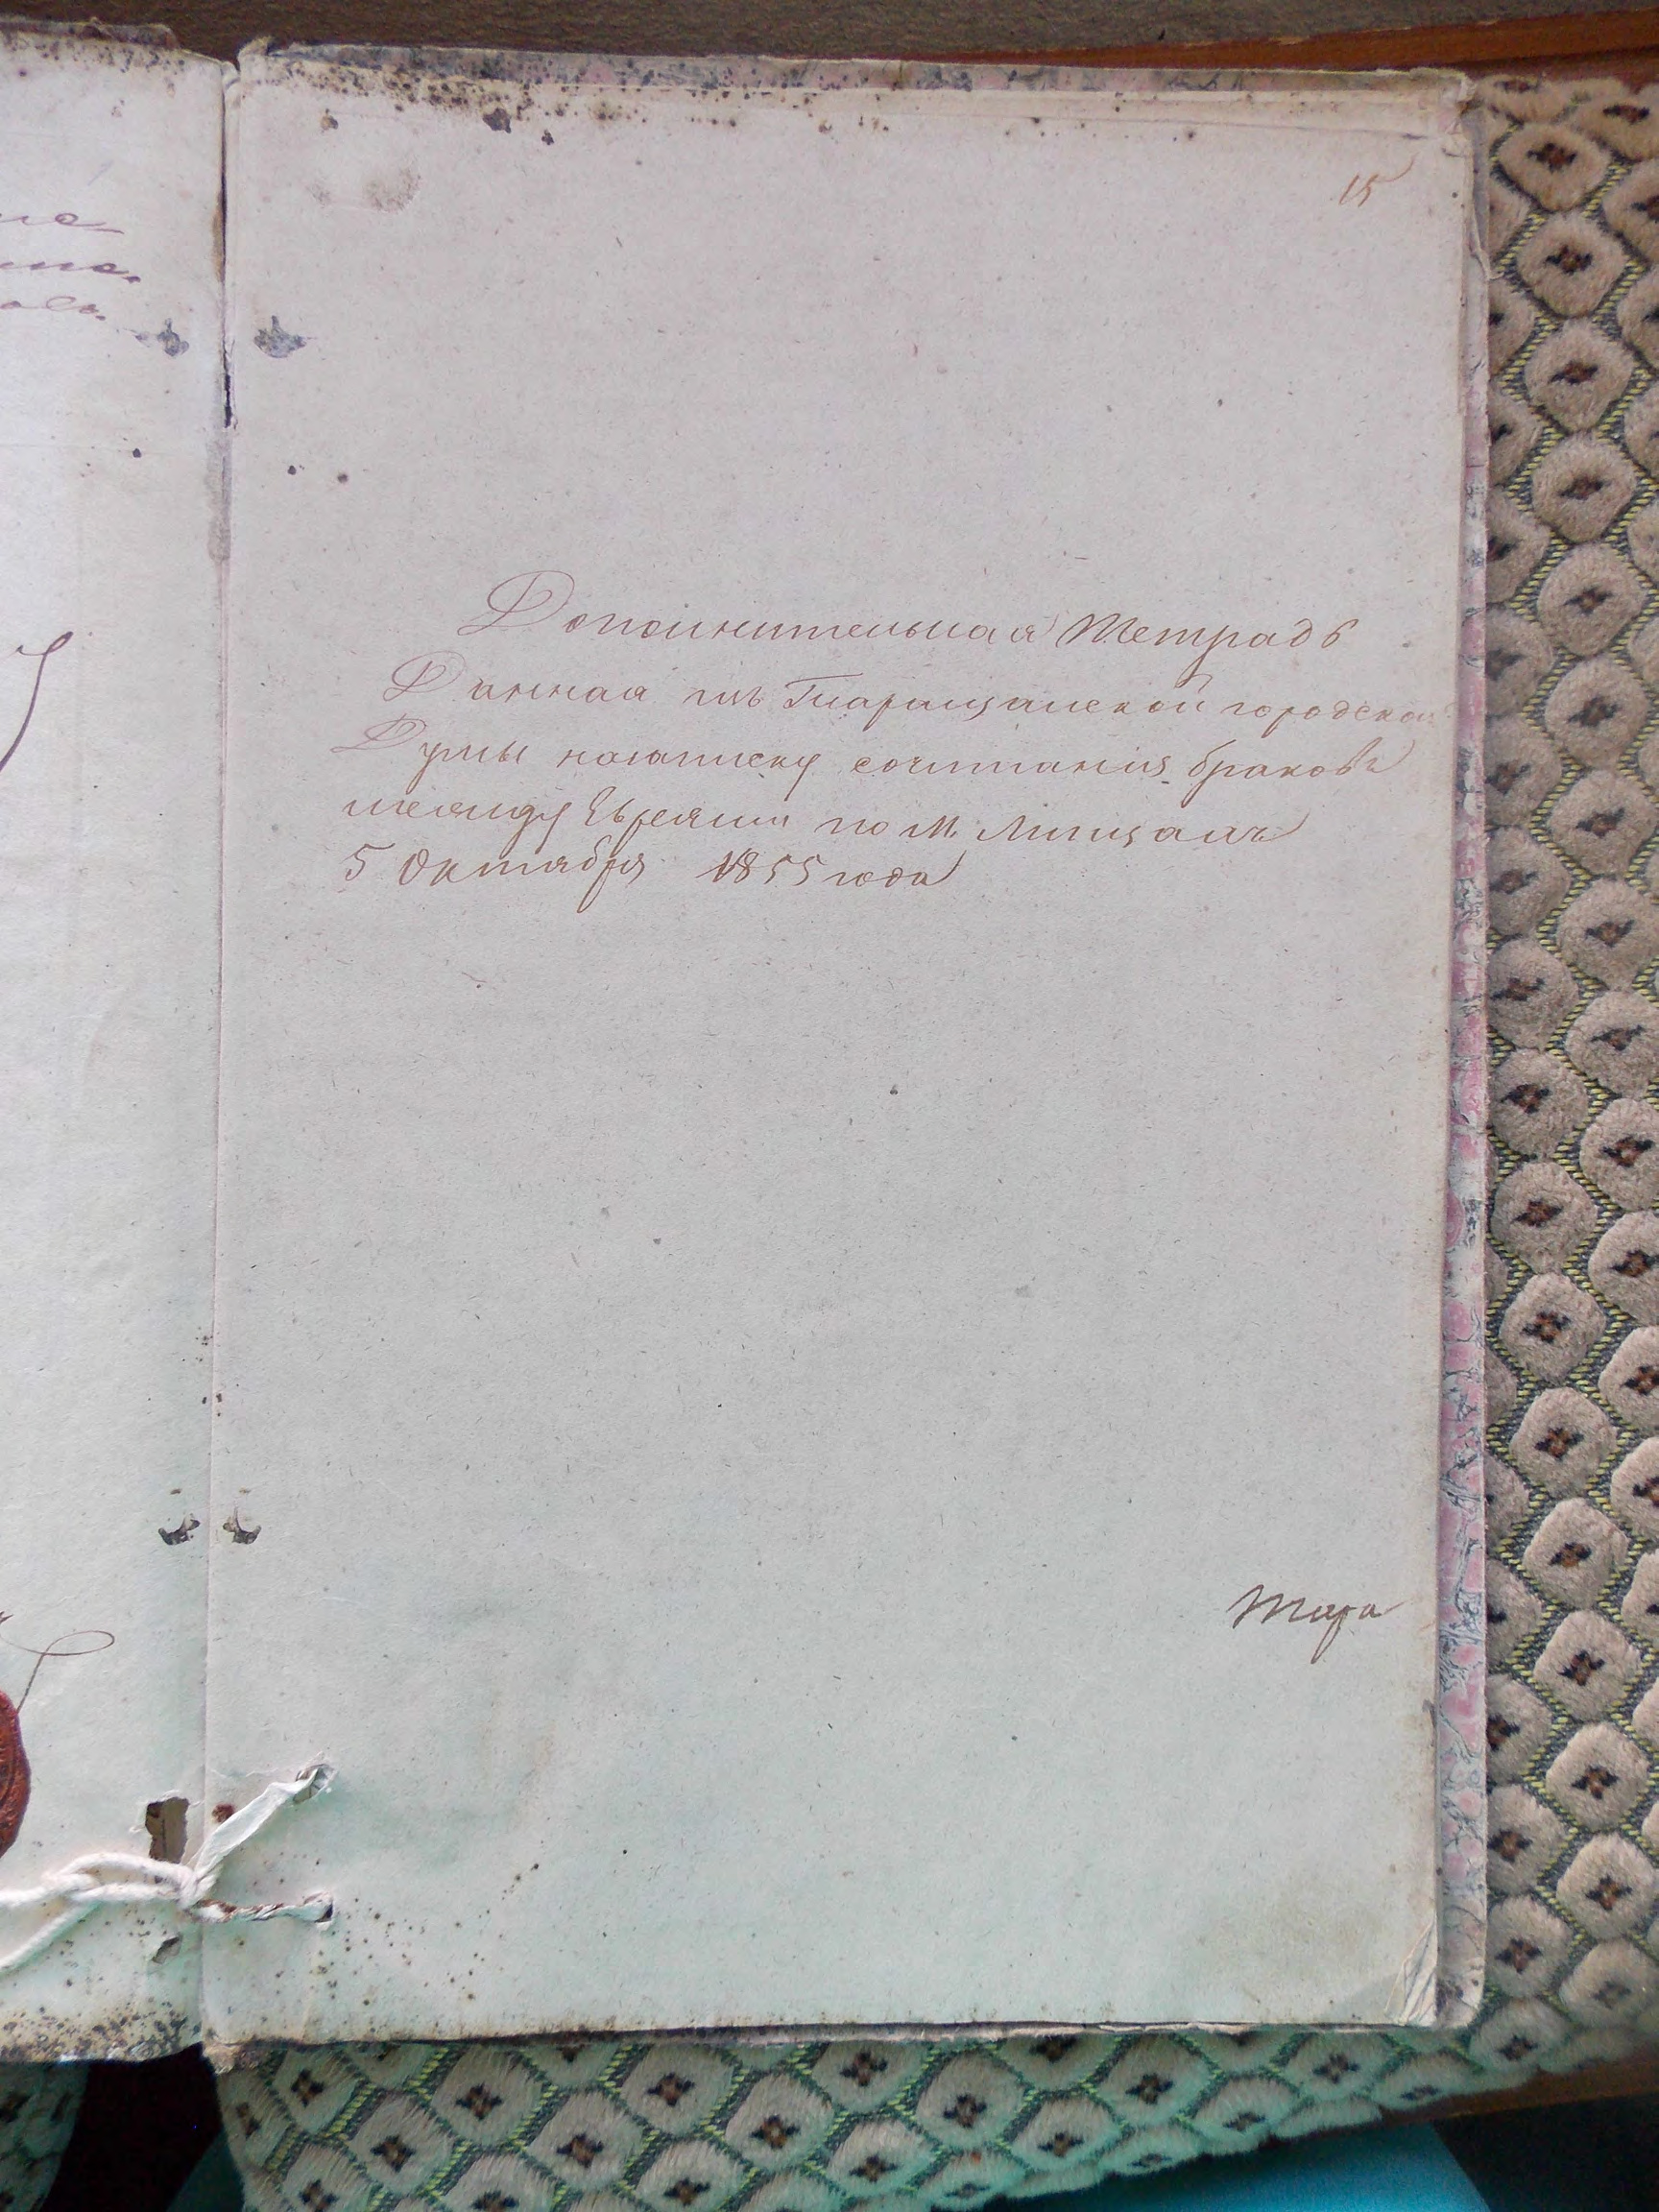 15
Дополнительная Тетрадь
Данная изъ Таращанской городской
Думы на записку сочитанія браковъ
между Евреями по М. Линцамъ
5 Октября 1855 года
Тара